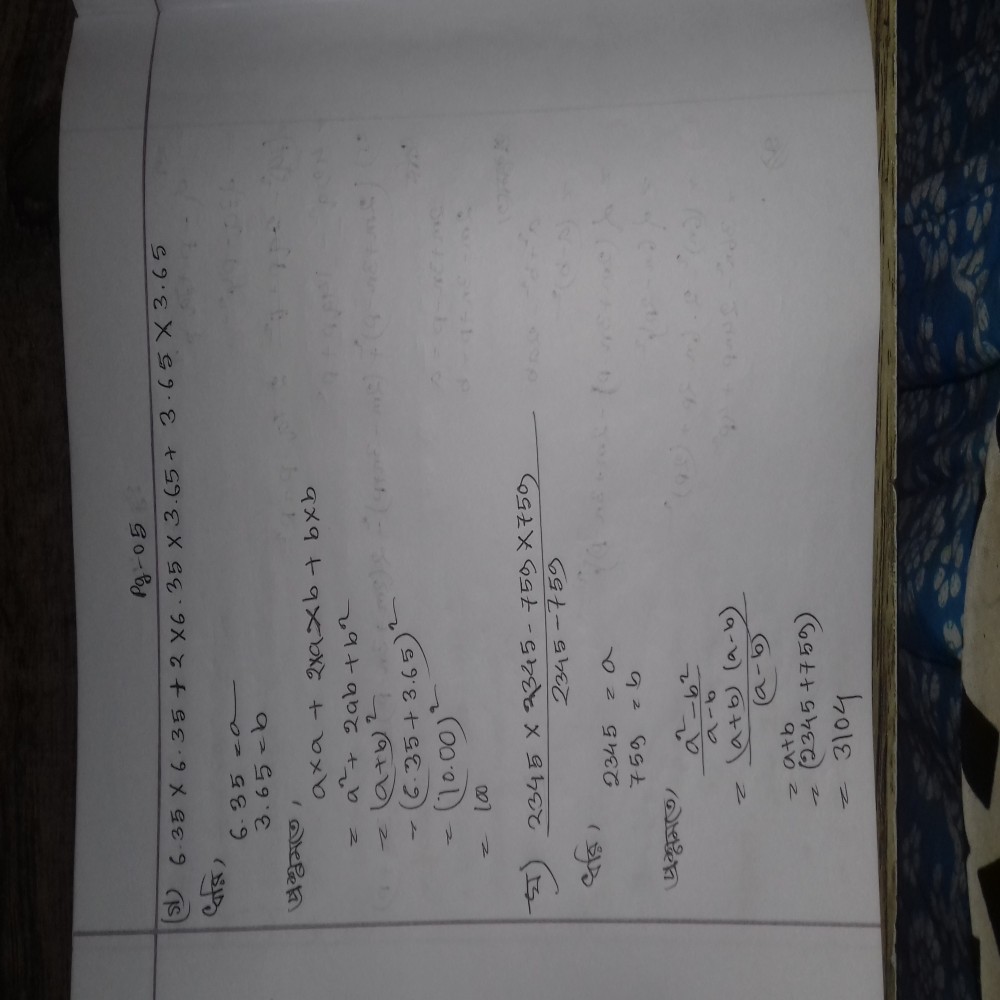 Pg-05
(গ) 6.35 × 6.35 + 2 × 6.35 × 3.65 + 3.65 × 3.65
ধরি,
6.35 = a
3.65 = b
প্রশ্নমতে,
a×a + 2×a×b + b×b
= a² + 2ab + b²
= (a+b)²
= (6.35 + 3.65)²
= (10.00)²
= 100
ঘ) 2345 × 2345 - 759 × 759
2345 - 759
ধরি,
2345 = a
759 = b
প্রশ্নমতে,
a² - b²
a - b
= (a+b) (a-b)
(a-b)
= a+b
= (2345 + 759)
= 3104